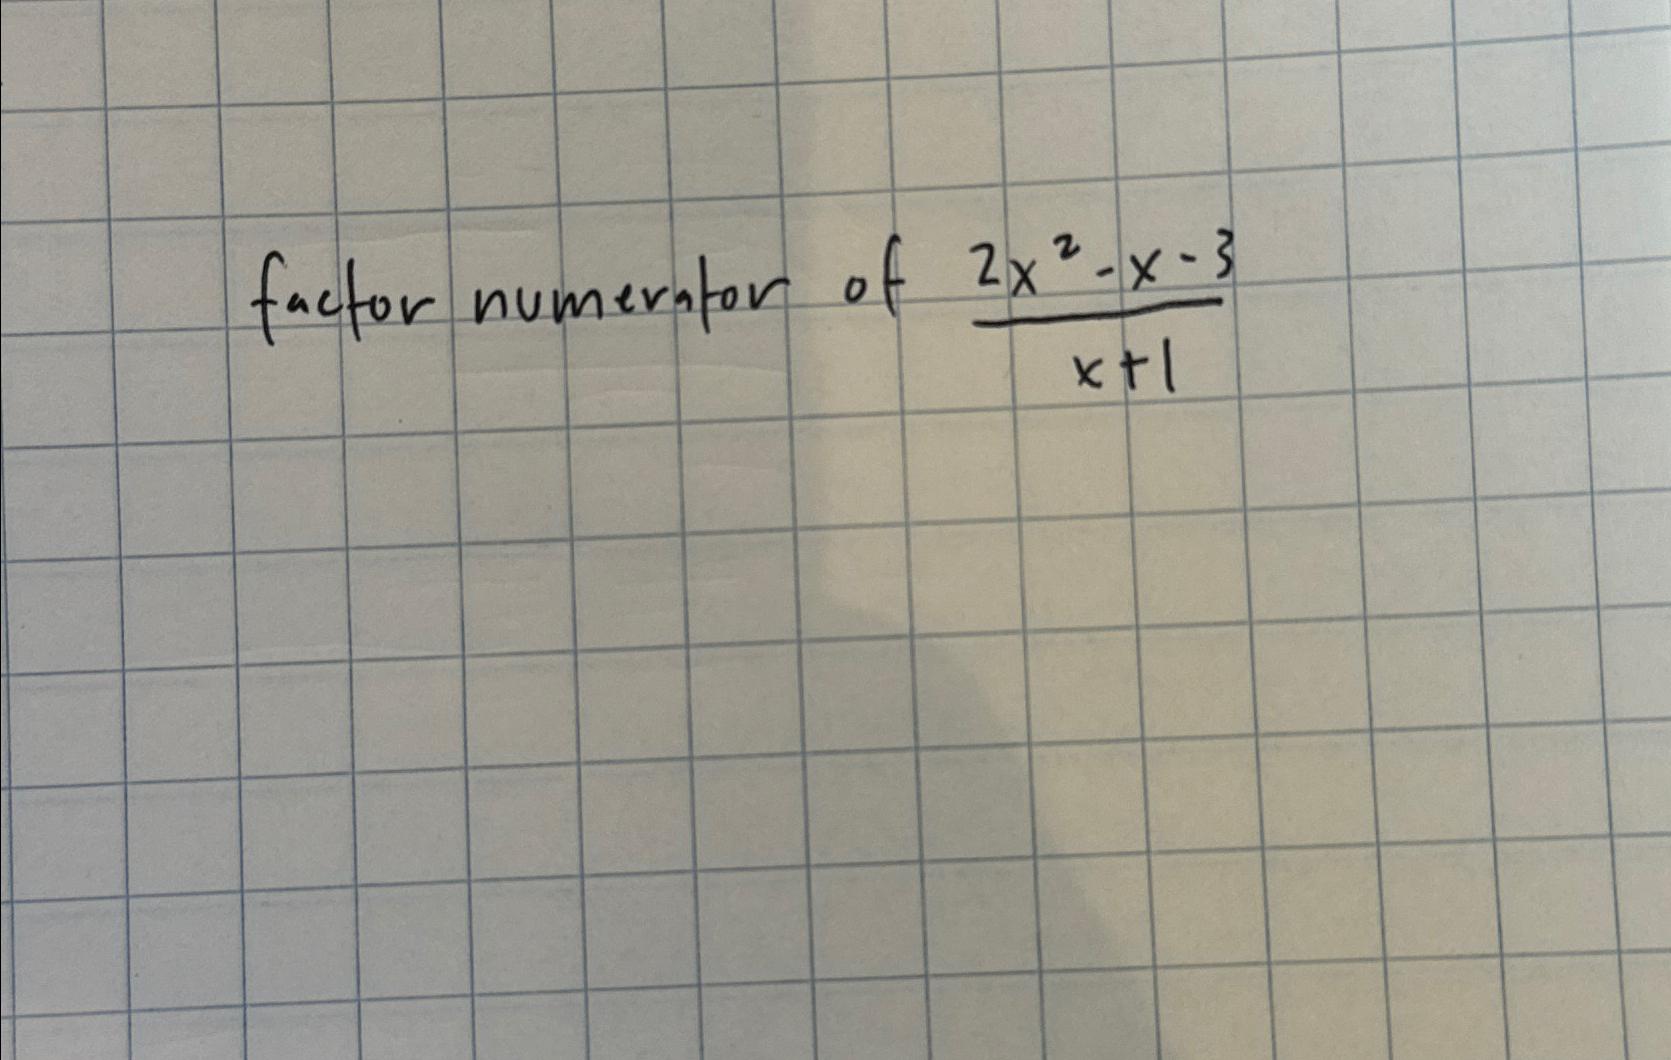 factor numerator of \frac{2x^2 - x - 3}{x + 1}